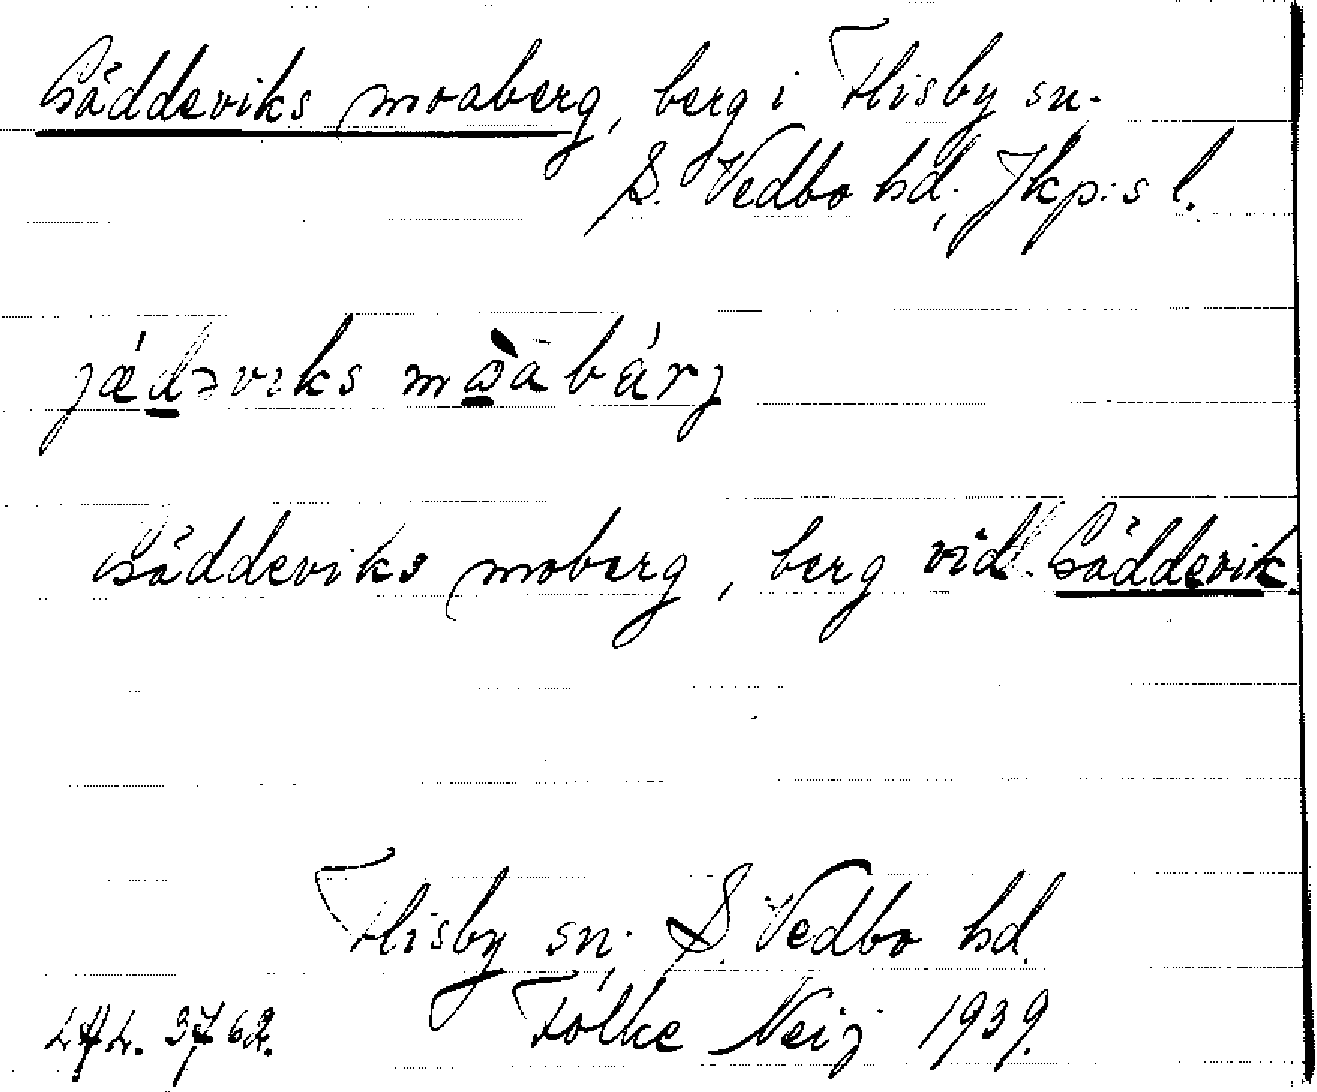 Gäddeviks moaberg, berg i Flisby sn.
S. Vedbo hd, Jkp:s l.
jǽdəviks mòabárj
Gäddeviks moberg, berg vid Gäddevik.
Flisby sn, S. Vedbo hd.
Folke Neij 1939.